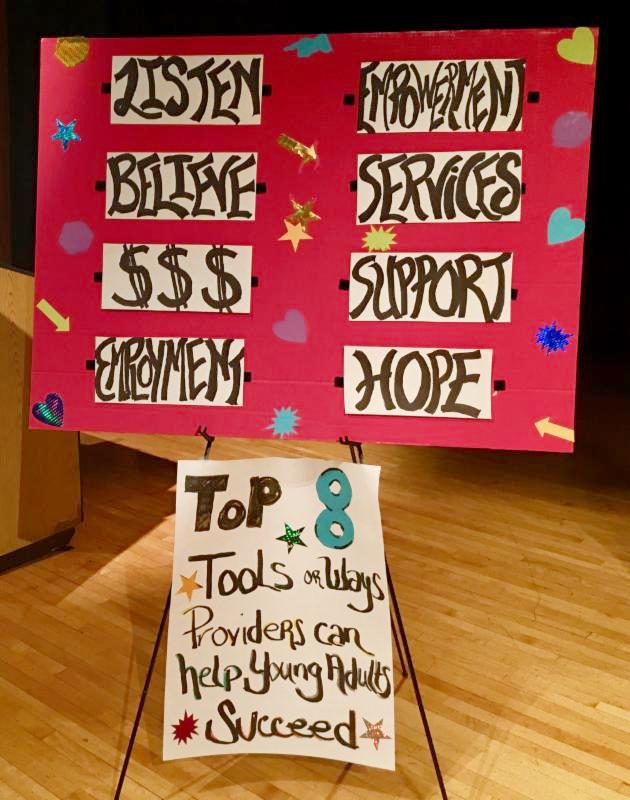 LISTEN
BELIEVE
$$$
EMPLOYMENT
EMPOWERMENT
SERVICES
SUPPORT
HOPE
TOP 8
Tools or Ways
Providers can
help Young Adults
Succeed